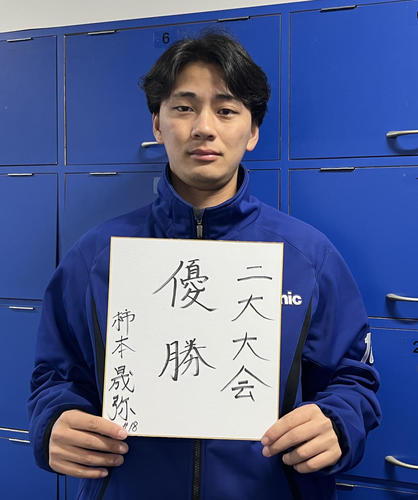 二大大会
優勝
柿本晟弥
#18
nic
6